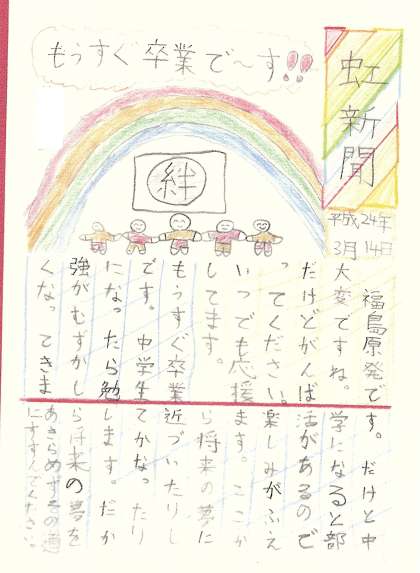 虹新聞
平成24年
3月14日
もうすぐ卒業で〜す!!
絆
福島原発で
大変ですね。
だけどがんば
ってください。
いつでも応援
してます。
もうすぐ卒業
です。中学生
になったら勉
強がむずかし
くなってきま
す。だけと中
学になると部
活があるので
楽しみがふえ
ます。ここか
ら将来の夢に
近づいたりし
てかなったり
します。だか
ら未来の夢を
あきらめずその道
にすすんでください。